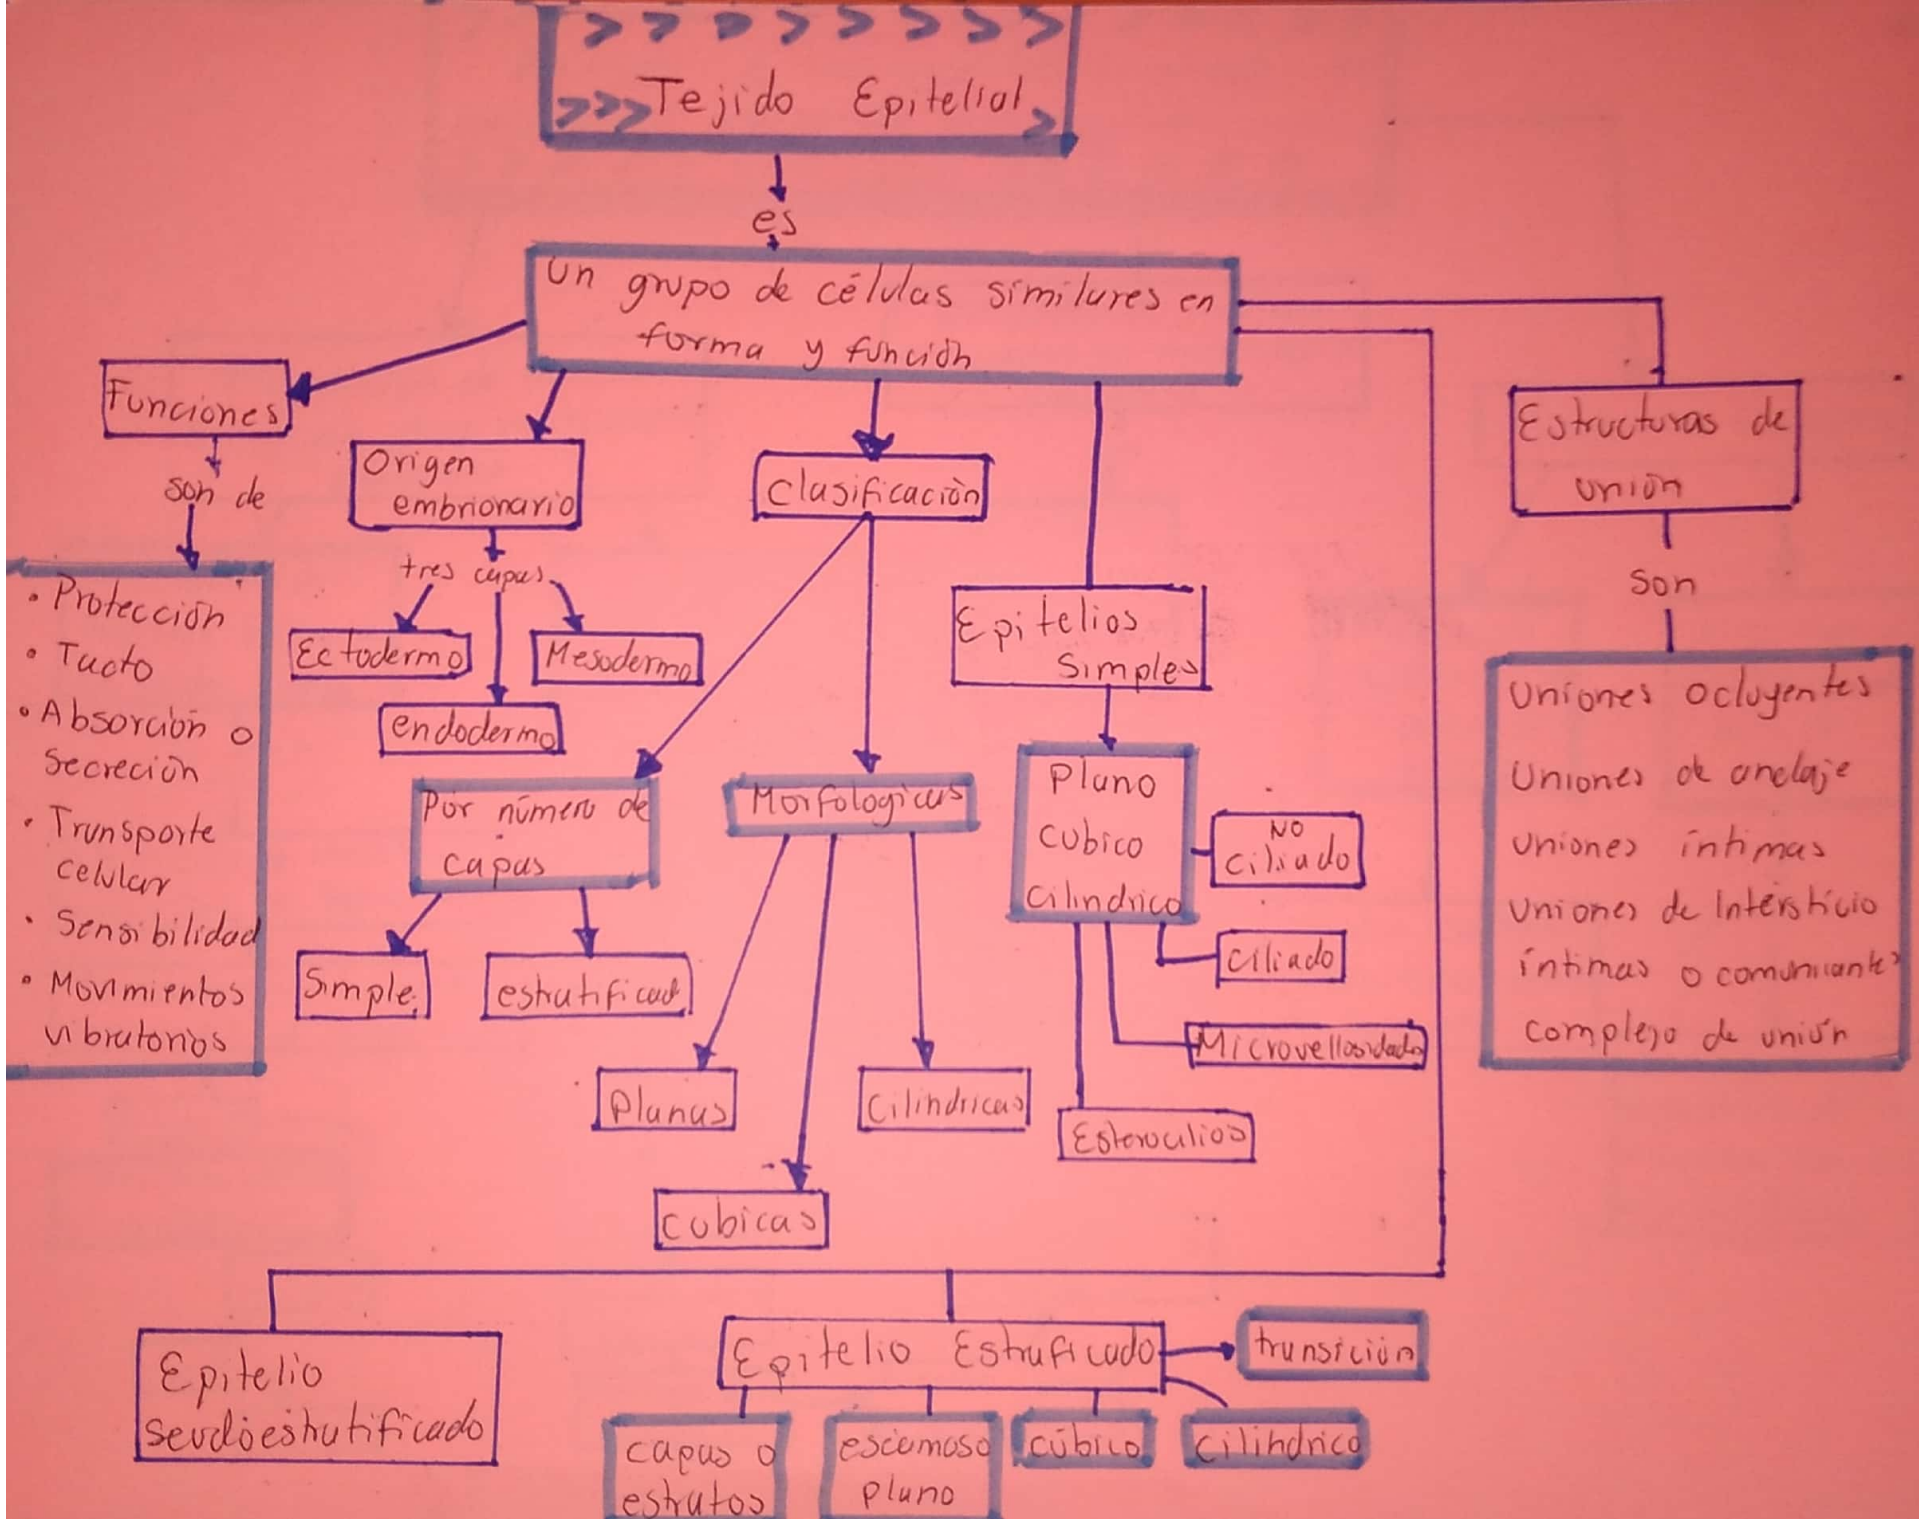 Tejido Epitelial
es
un grupo de células similares en
forma y función
Funciones
son de
• Protección
• Tacto
• Absorción o
secreción
• Transporte
celular
• Sensibilidad
• Movimientos
vibratorios
Origen
embrionario
tres capas
Ectodermo
Mesodermo
endodermo
Clasificación
Por número de
capas
Simple
estratificad
Morfologicas
Planas
Cilindricas
Cubicas
Epitelios
Simples
Plano
Cubico
Cilindrico
NO
Ciliado
Ciliado
Microvellosidades
Esterocilios
Estructuras de
unión
son
Uniones ocluyentes
Uniones de anclaje
Uniones íntimas
Uniones de Intersticio
íntimas o comunicantes
complejo de unión
Epitelio
seudoestratificado
Epitelio Estraficado
transición
capas o
estratos
escamoso
plano
cúbico
cilindrico